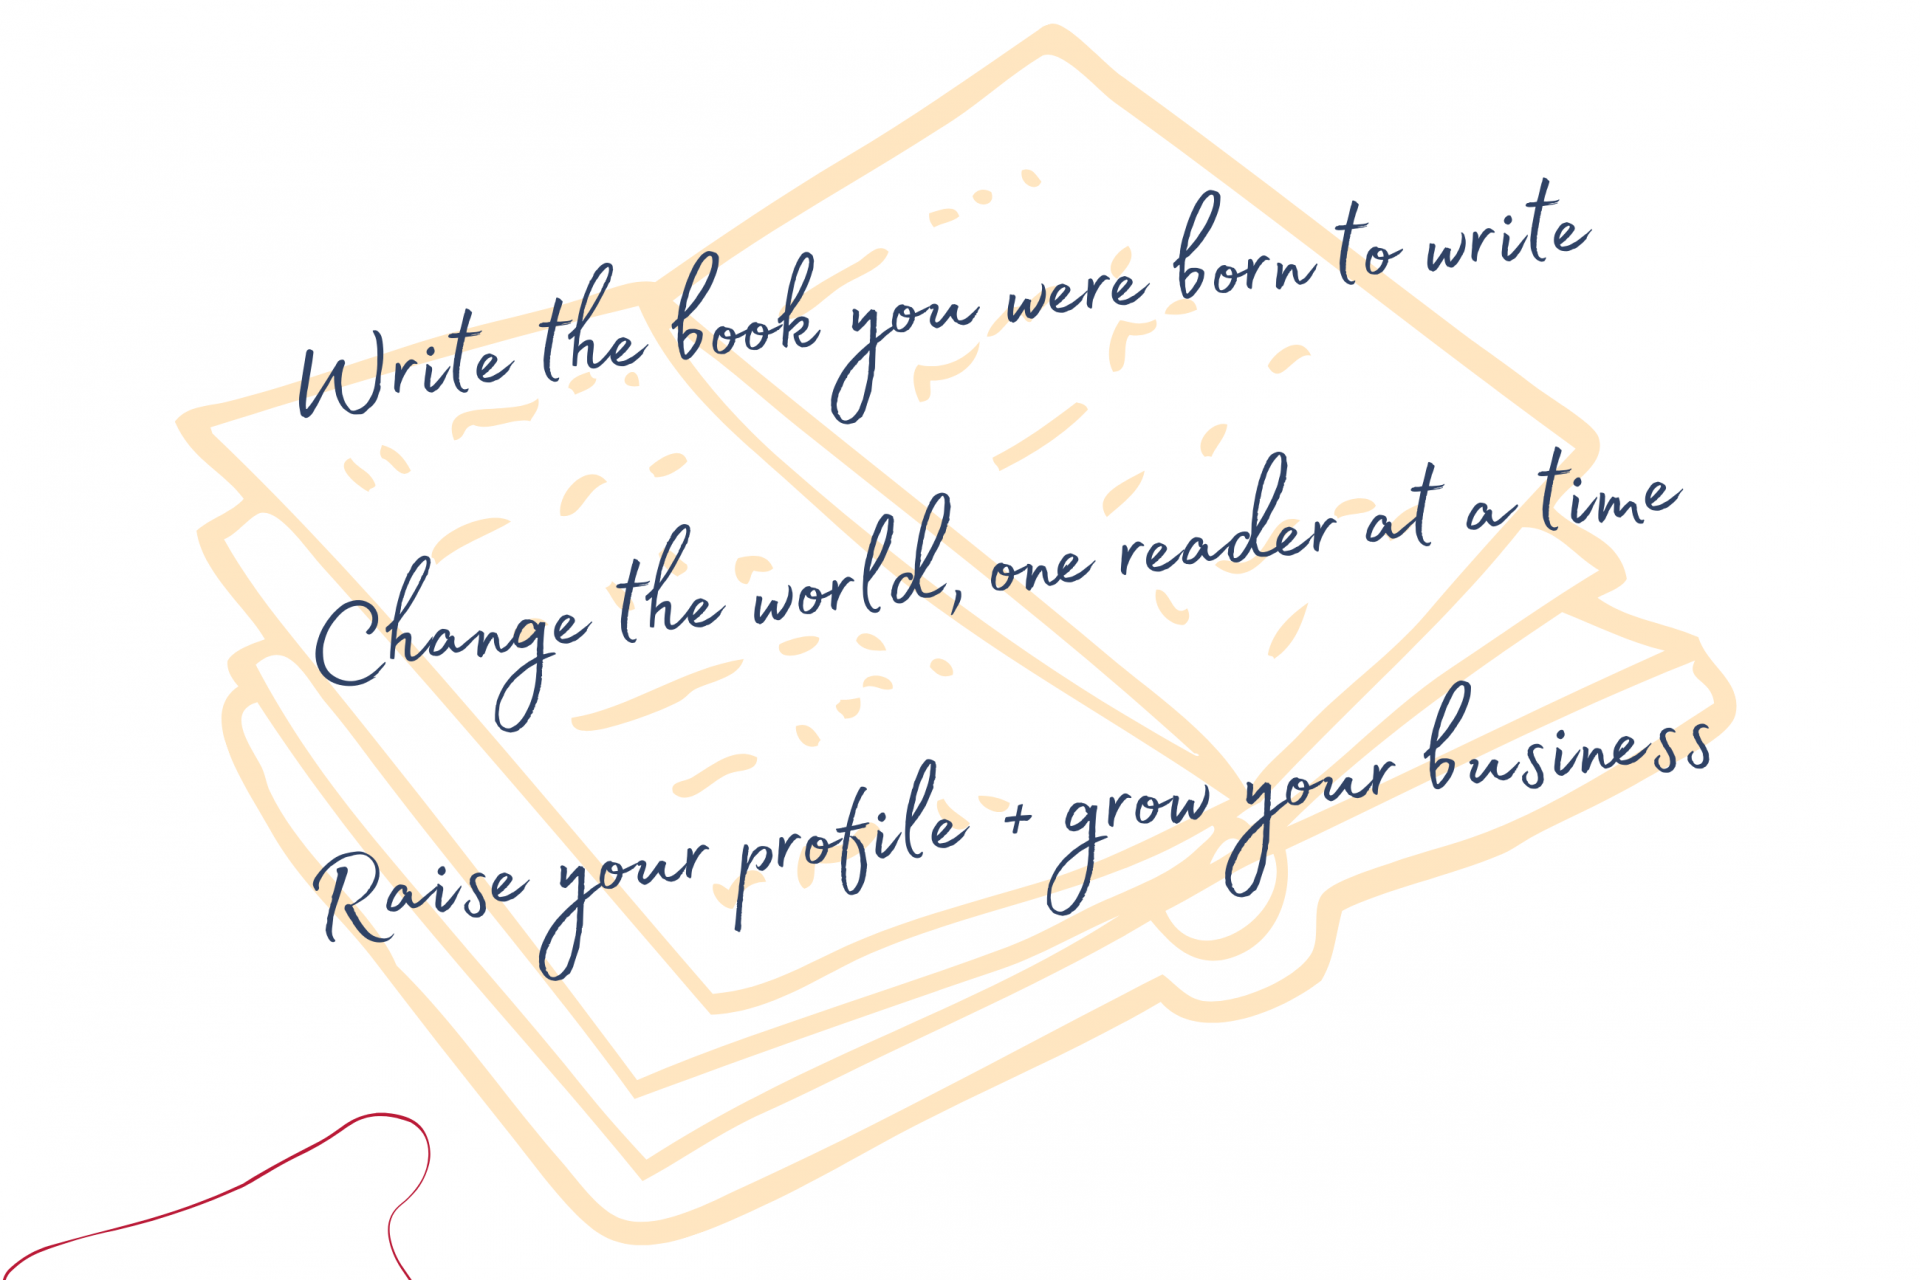 Write the book you were born to write
Change the world, one reader at a time
Raise your profile + grow your business